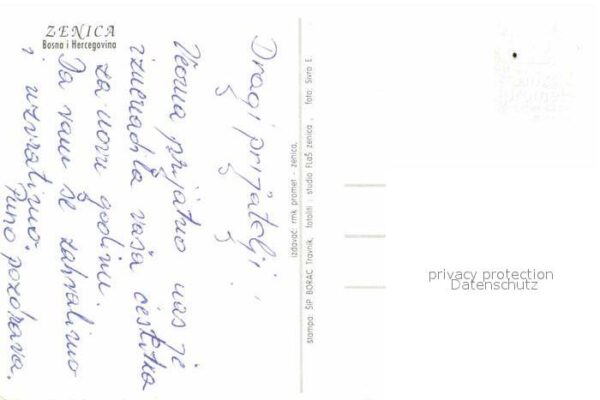 ZENICA
Bosna i Hercegovina
Dragi prijatelji!
Veoma prijatno nas je
iznenadila vaša čestitka
za novu godinu.
Da vam se zahvalimo
i uzvratimo.
Puno pozdrava.
izdavač: rmk promet - zenica,
štampa: ŠIP BORAC Travnik, fotoliti: studio FLaŠ zenica, foto: Sivro E.
privacy protection
Datenschutz